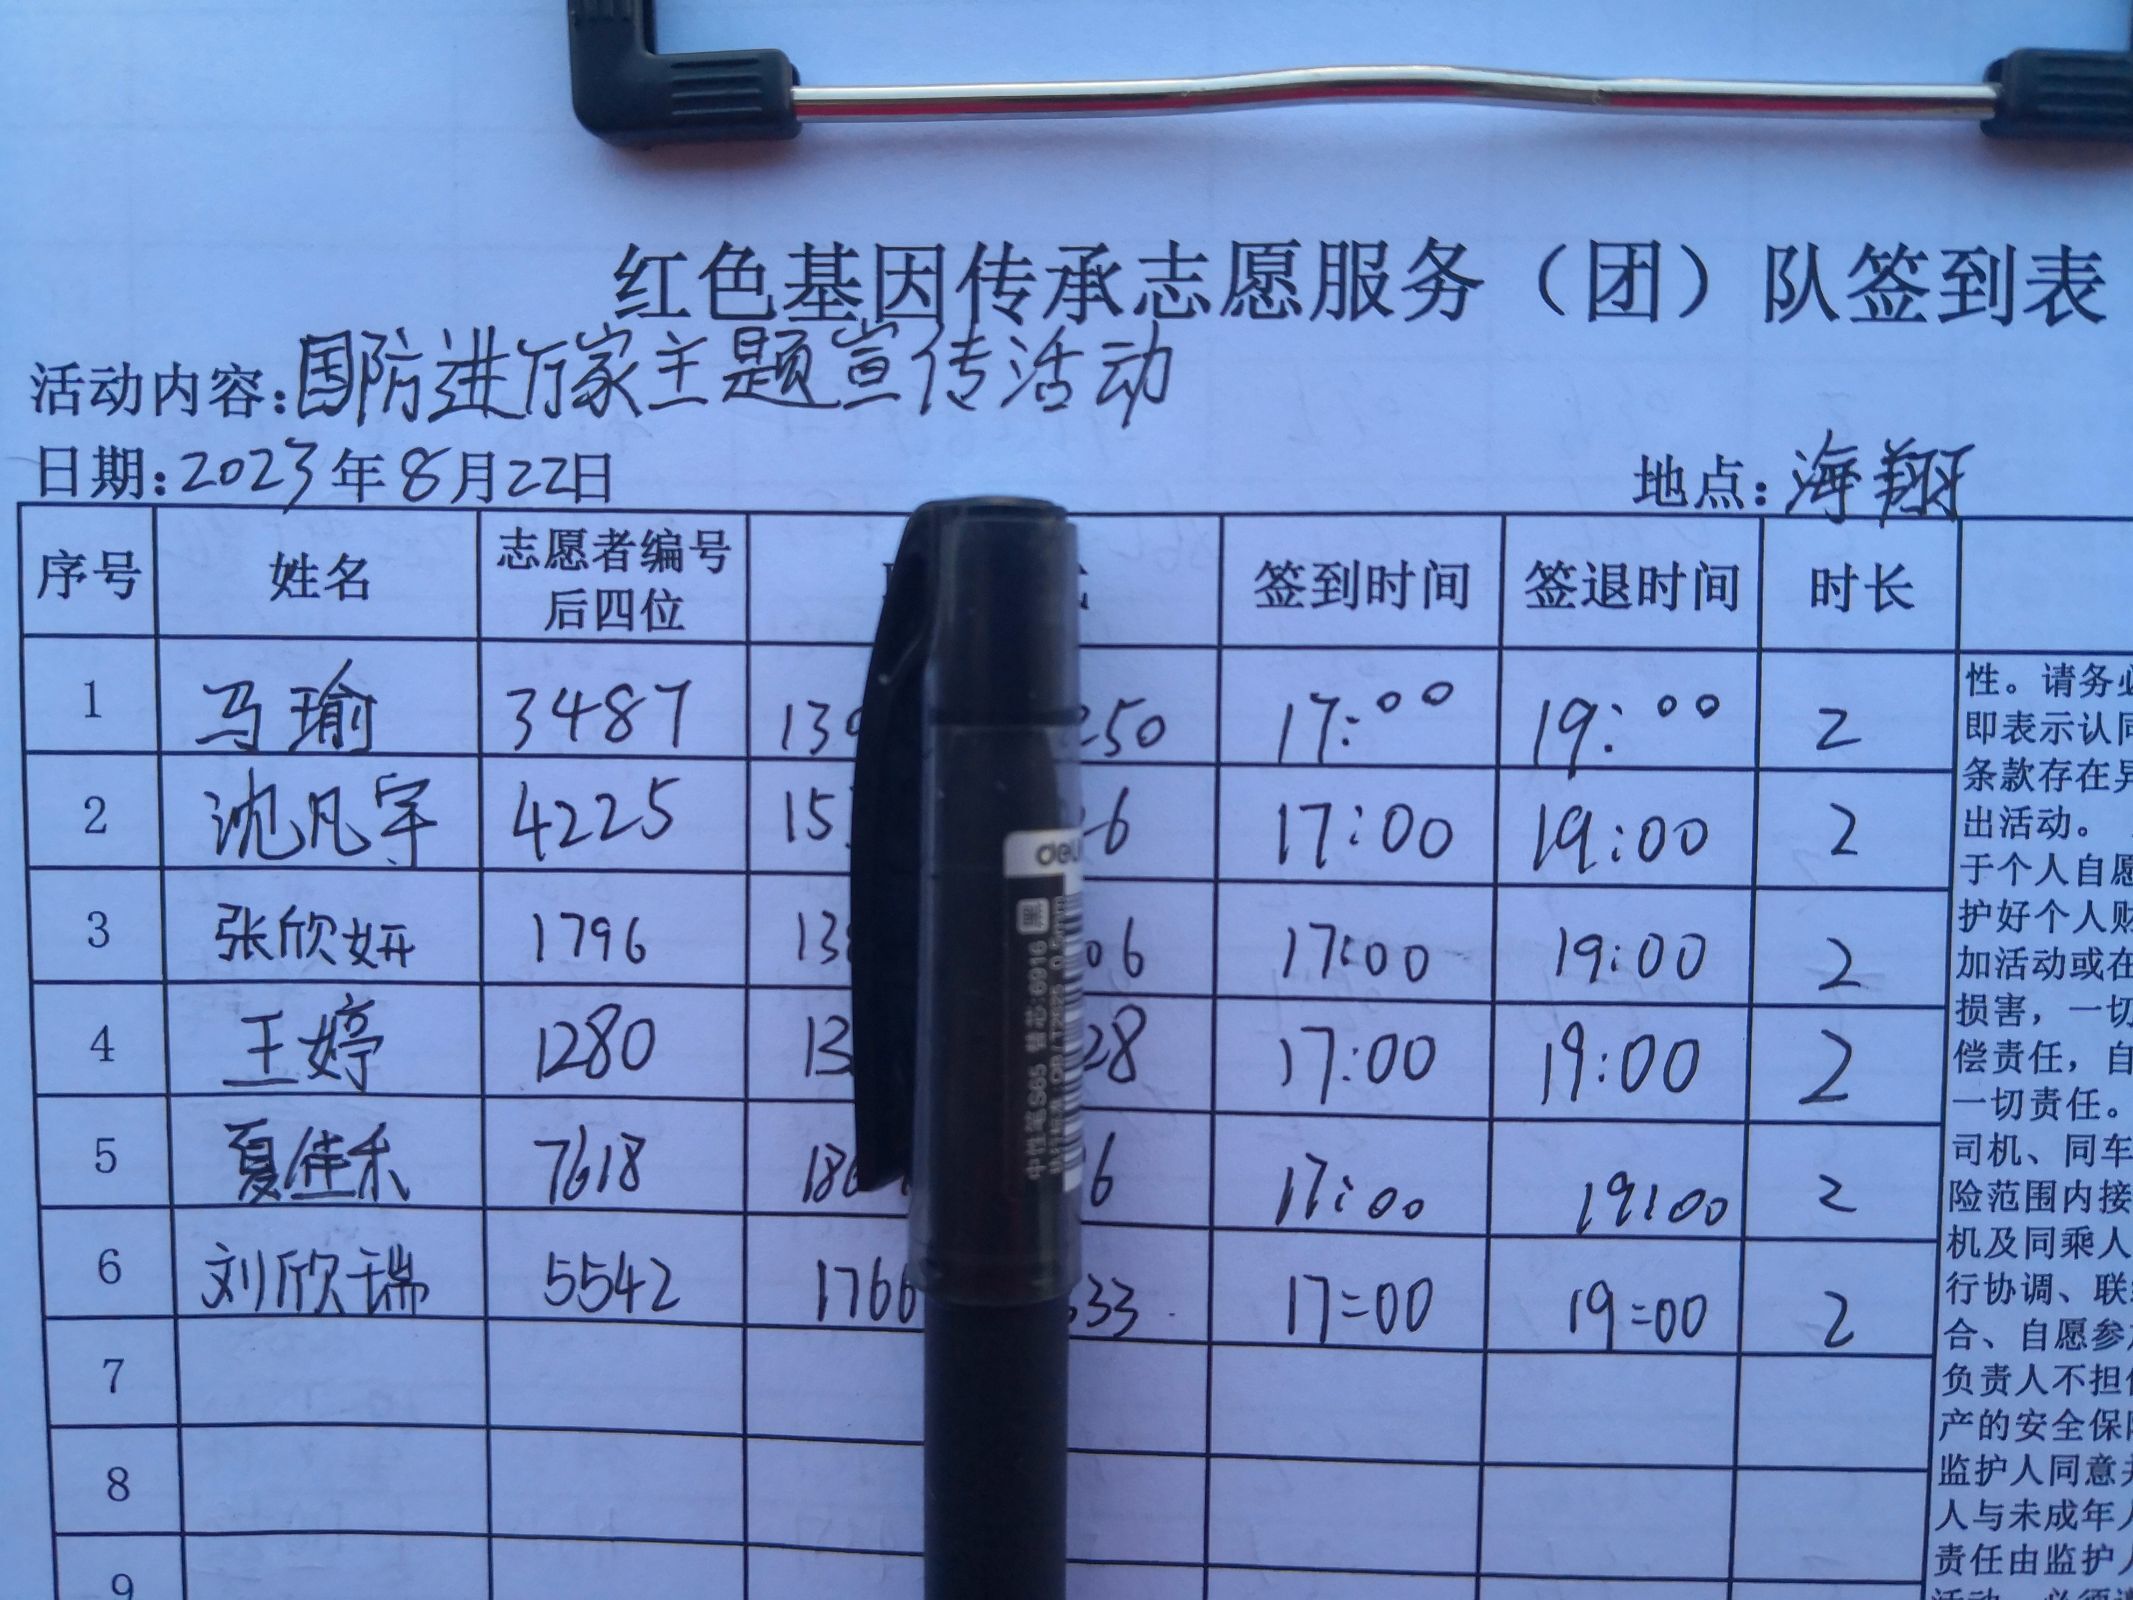 红色基因传承志愿服务（团）队签到表
活动内容:国防进万家主题宣传活动
日期:2023年8月22日 地点:海翔
序号 姓名 志愿者编号后四位 签到时间 签退时间 时长
1 马瑜 3487 139 250 17:00 19:00 2
2 沈凡宇 4225 15 6 17:00 19:00 2
3 张欣妍 1796 13 06 17:00 19:00 2
4 王婷 1280 13 28 17:00 19:00 2
5 夏佳禾 7618 18 6 17:00 19:00 2
6 刘欣瑞 5542 1766 33 17=00 19=00 2
7
8
9
性。请务必
即表示认同
条款存在异
出活动。
于个人自愿
护好个人财
加活动或在
损害，一切
偿责任，自
一切责任。
司机、同车
险范围内接
机及同乘人
行协调、联
合、自愿参
负责人不担
产的安全保
监护人同意
人与未成年
责任由监护
deli
中性笔S65 替芯:6916 黑
0.5mm